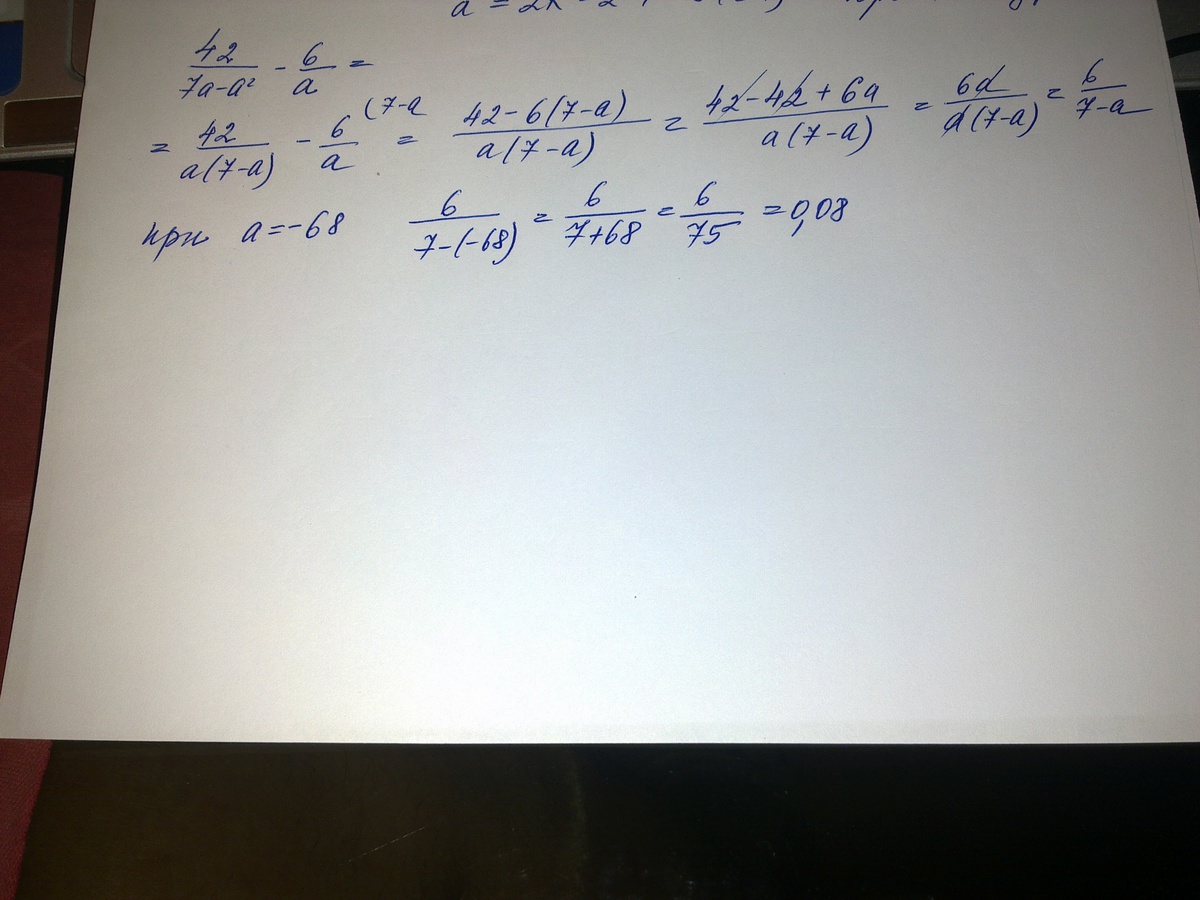 a = 2
42/(7a-a²) - 6/a =
= 42/(a(7-a)) - 6/a (7-a = (42-6(7-a))/(a(7-a)) = (42-42+6a)/(a(7-a)) = 6a/(a(7-a)) = 6/(7-a)
при a=-68 6/(7-(-68)) = 6/(7+68) = 6/75 = 0,08